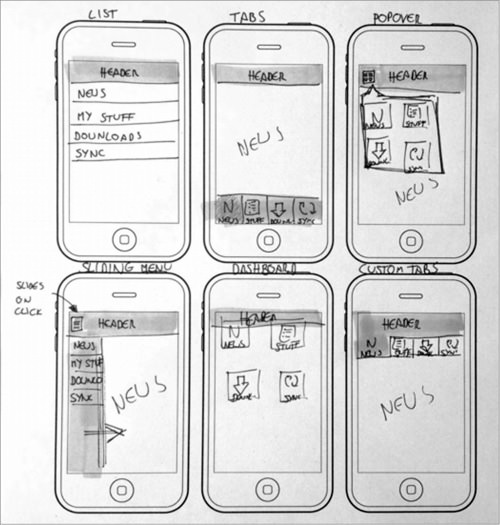 LIST
HEADER
NEWS
MY STUFF
DOWNLOADS
SYNC
TABS
HEADER
NEWS
N
NEWS STUFF DOWN.. SYNC
POPOVER
HEADER
N
NEWS STUFF
NEWS
SLIDING MENU
SLIDES
ON
CLICK
HEADER
NEWS
MY STUF
DOWNLO
SYNC
NEWS
DASHBOARD
HEADER
N
NEWS STUFF
DOWN.. SYNC
CUSTOM TABS
HEADER
N
NEWS STUFF SYNC
NEWS